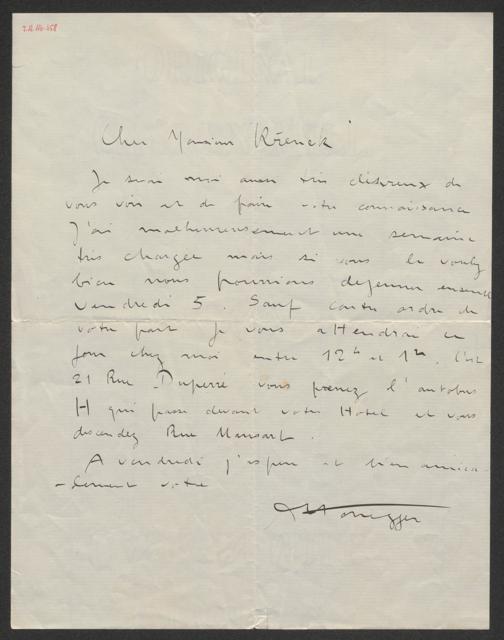 Cher Monsieur Křenek
Je suis moi aussi très désireux de
vous voir et de faire votre connaissance
J'ai malheureusement une semaine
très chargée mais si vous le voulez
bien nous pourrions dejeuner ensemble
vendredi 5. Sauf contre ordre de
votre part je vous attendrai ce
jour chez moi entre 12h et 1h. C'est
21 Rue Duperré vous prenez l'autobus
H qui passe devant votre Hotel et vous
descendez Rue Mansart.
A vendredi j'espère et bien amica-
-lement votre
AHonegger